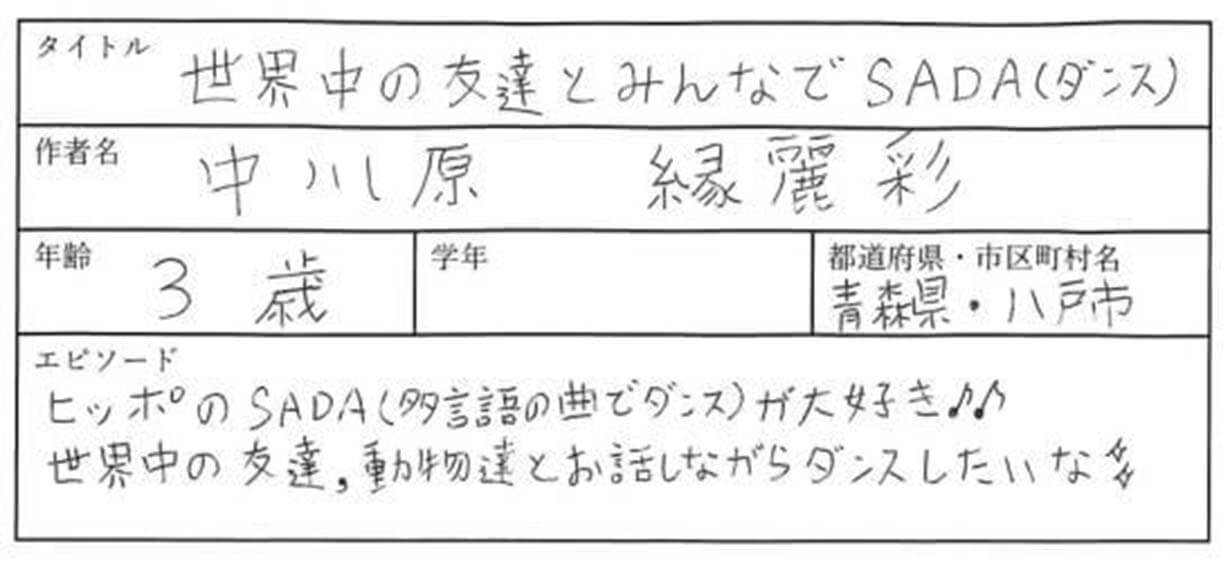 タイトル
世界中の友達とみんなでSADA(ダンス)
作者名
中川原 縁麗彩
年齢
3歳
学年
都道府県・市区町村名
青森県・八戸市
エピソード
ヒッポのSADA(多言語の曲でダンス)が大好き♪♪
世界中の友達,動物達とお話しながらダンスしたいな